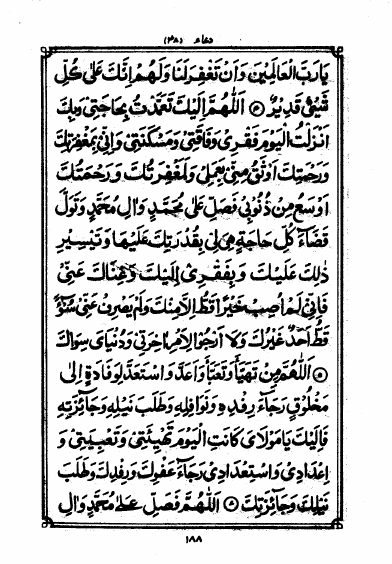 دعاء (۴۸)
يَارَبَّ الْعَالَمِيْنَ وَاَنْ تَغْفِرَ لَنَا وَلَهُمْ اِنَّكَ عَلٰى كُلِّ
شَيْئٍ قَدِيْرٌ ○ اَللّٰهُمَّ اِلَيْكَ تَعَمَّدْتُ بِحَاجَتِيْ وَبِكَ
اَنْزَلْتُ الْيَوْمَ فَقْرِيْ وَفَاقَتِيْ وَمَسْكَنَتِيْ وَاِنِّيْ بِمَغْفِرَتِكَ
وَرَحْمَتِكَ اَوْثَقُ مِنِّيْ بِعَمَلِيْ وَلَمَغْفِرَتُكَ وَرَحْمَتُكَ
اَوْسَعُ مِنْ ذُنُوْبِيْ فَصَلِّ عَلٰى مُحَمَّدٍ وَاٰلِ مُحَمَّدٍ وَتَوَلَّ
قَضَاۤءَ كُلِّ حَاجَةٍ هِيَ لِيْ بِقُدْرَتِكَ عَلَيْهَا وَتَيْسِيْرِ
ذٰلِكَ عَلَيْكَ وَبِفَقْرِيْ اِلَيْكَ وَغِنَاكَ عَنِّيْ
فَاِنِّيْ لَمْ اُصِبْ خَيْرًا قَطُّ اِلَّا مِنْكَ وَلَمْ يَصْرِفْ عَنِّيْ سُوْۤءًا
قَطُّ اَحَدٌ غَيْرُكَ وَلَا اَرْجُوْ لِاَمْرِ اٰخِرَتِيْ وَدُنْيَايَ سِوَاكَ
○ اَللّٰهُمَّ مَنْ تَهَيَّأَ وَتَعَبَّأَ وَاَعَدَّ وَاسْتَعَدَّ لِوِفَادَةٍ اِلٰى
مَخْلُوْقٍ رَجَاۤءَ رِفْدِهٖ وَنَوَافِلِهٖ وَطَلَبَ نَيْلِهٖ وَجَائِزَتِهٖ
فَاِلَيْكَ يَا مَوْلَايَ كَانَتِ الْيَوْمَ تَهْيِئَتِيْ وَتَعْبِيَتِيْ وَ
اِعْدَادِيْ وَاسْتِعْدَادِيْ رَجَاۤءَ عَفْوِكَ وَرِفْدِكَ وَطَلَبَ
نَيْلِكَ وَجَائِزَتِكَ ○ اَللّٰهُمَّ فَصَلِّ عَلٰى مُحَمَّدٍ وَاٰلِ
۱۸۸